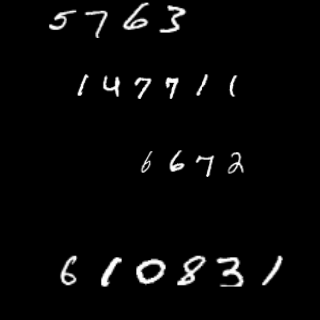 5763
147711
6672
610831